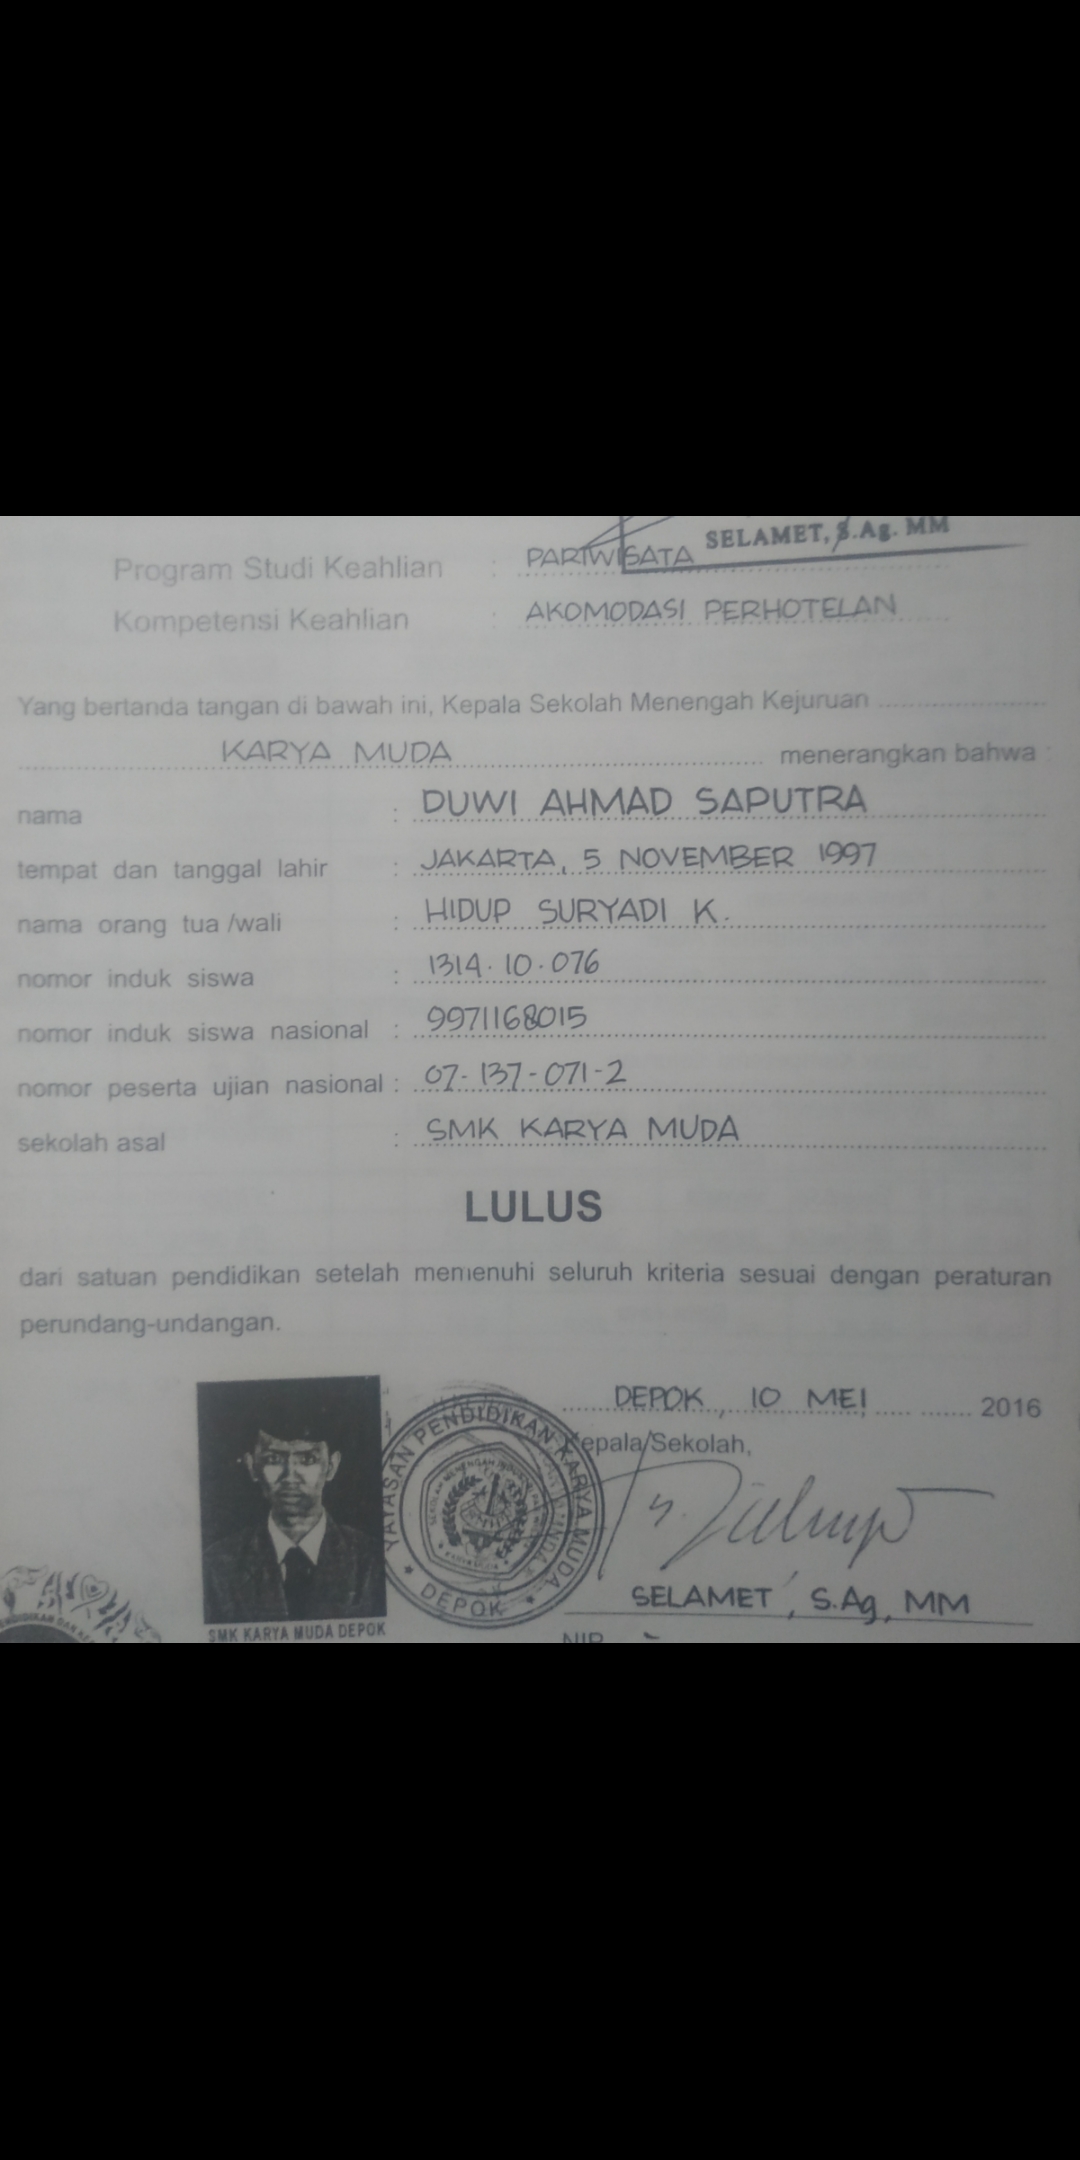 SELAMET, S.Ag. MM
Program Studi Keahlian : PARIWISATA
Kompetensi Keahlian : AKOMODASI PERHOTELAN
Yang bertanda tangan di bawah ini, Kepala Sekolah Menengah Kejuruan
KARYA MUDA menerangkan bahwa :
nama : DUWI AHMAD SAPUTRA
tempat dan tanggal lahir : JAKARTA, 5 NOVEMBER 1997
nama orang tua /wali : HIDUP SURYADI K.
nomor induk siswa : 1314.10.076
nomor induk siswa nasional : 9971168015
nomor peserta ujian nasional : 07-137-071-2
sekolah asal : SMK KARYA MUDA
LULUS
dari satuan pendidikan setelah memenuhi seluruh kriteria sesuai dengan peraturan
perundang-undangan.
DEPOK, 10 MEI 2016
Kepala Sekolah,
YAYASAN PENDIDIKAN KARYA MUDA
DEPOK
SELAMET, S.Ag, MM
SMK KARYA MUDA DEPOK
NIP